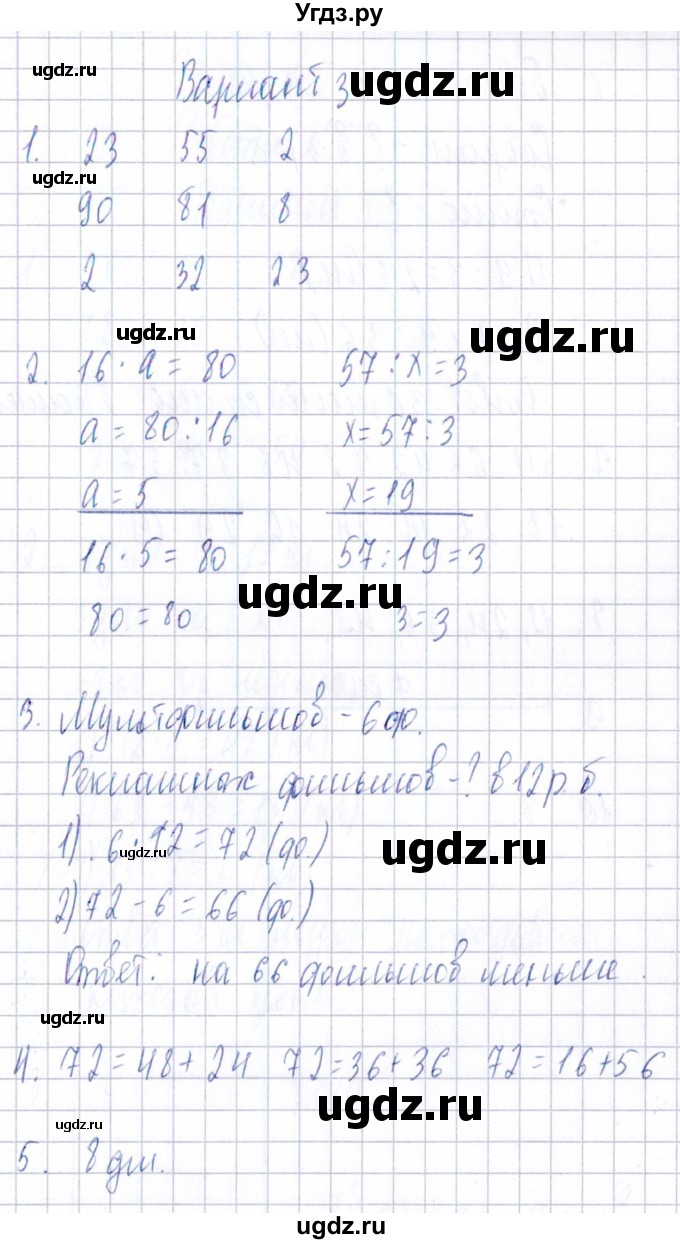 Угдз.ру
ugdz.ru
Вариант 3 ugdz.ru
1. 23 55 2
ugdz.ru
90 81 8
2 32 23
ugdz.ru ugdz.ru
2. 16 · a = 80 57 : x = 3
a = 80 : 16 x = 57 : 3
a = 5 x = 19
16 · 5 = 80 57 : 19 = 3
ugdz.ru
80 = 80 3 = 3
3. Мультфильмов - 6 ф.
Рекламных фильмов - ? в 12 р. б.
1) 6 · 12 = 72 (ф.)
ugdz.ru ugdz.ru
2) 72 - 6 = 66 (ф.)
Ответ: на 66 фильмов меньше.
ugdz.ru
4. 72 = 48 + 24 72 = 36 + 36 72 = 16 + 56
ugdz.ru
ugdz.ru
5. 8 дм.
ugdz.ru